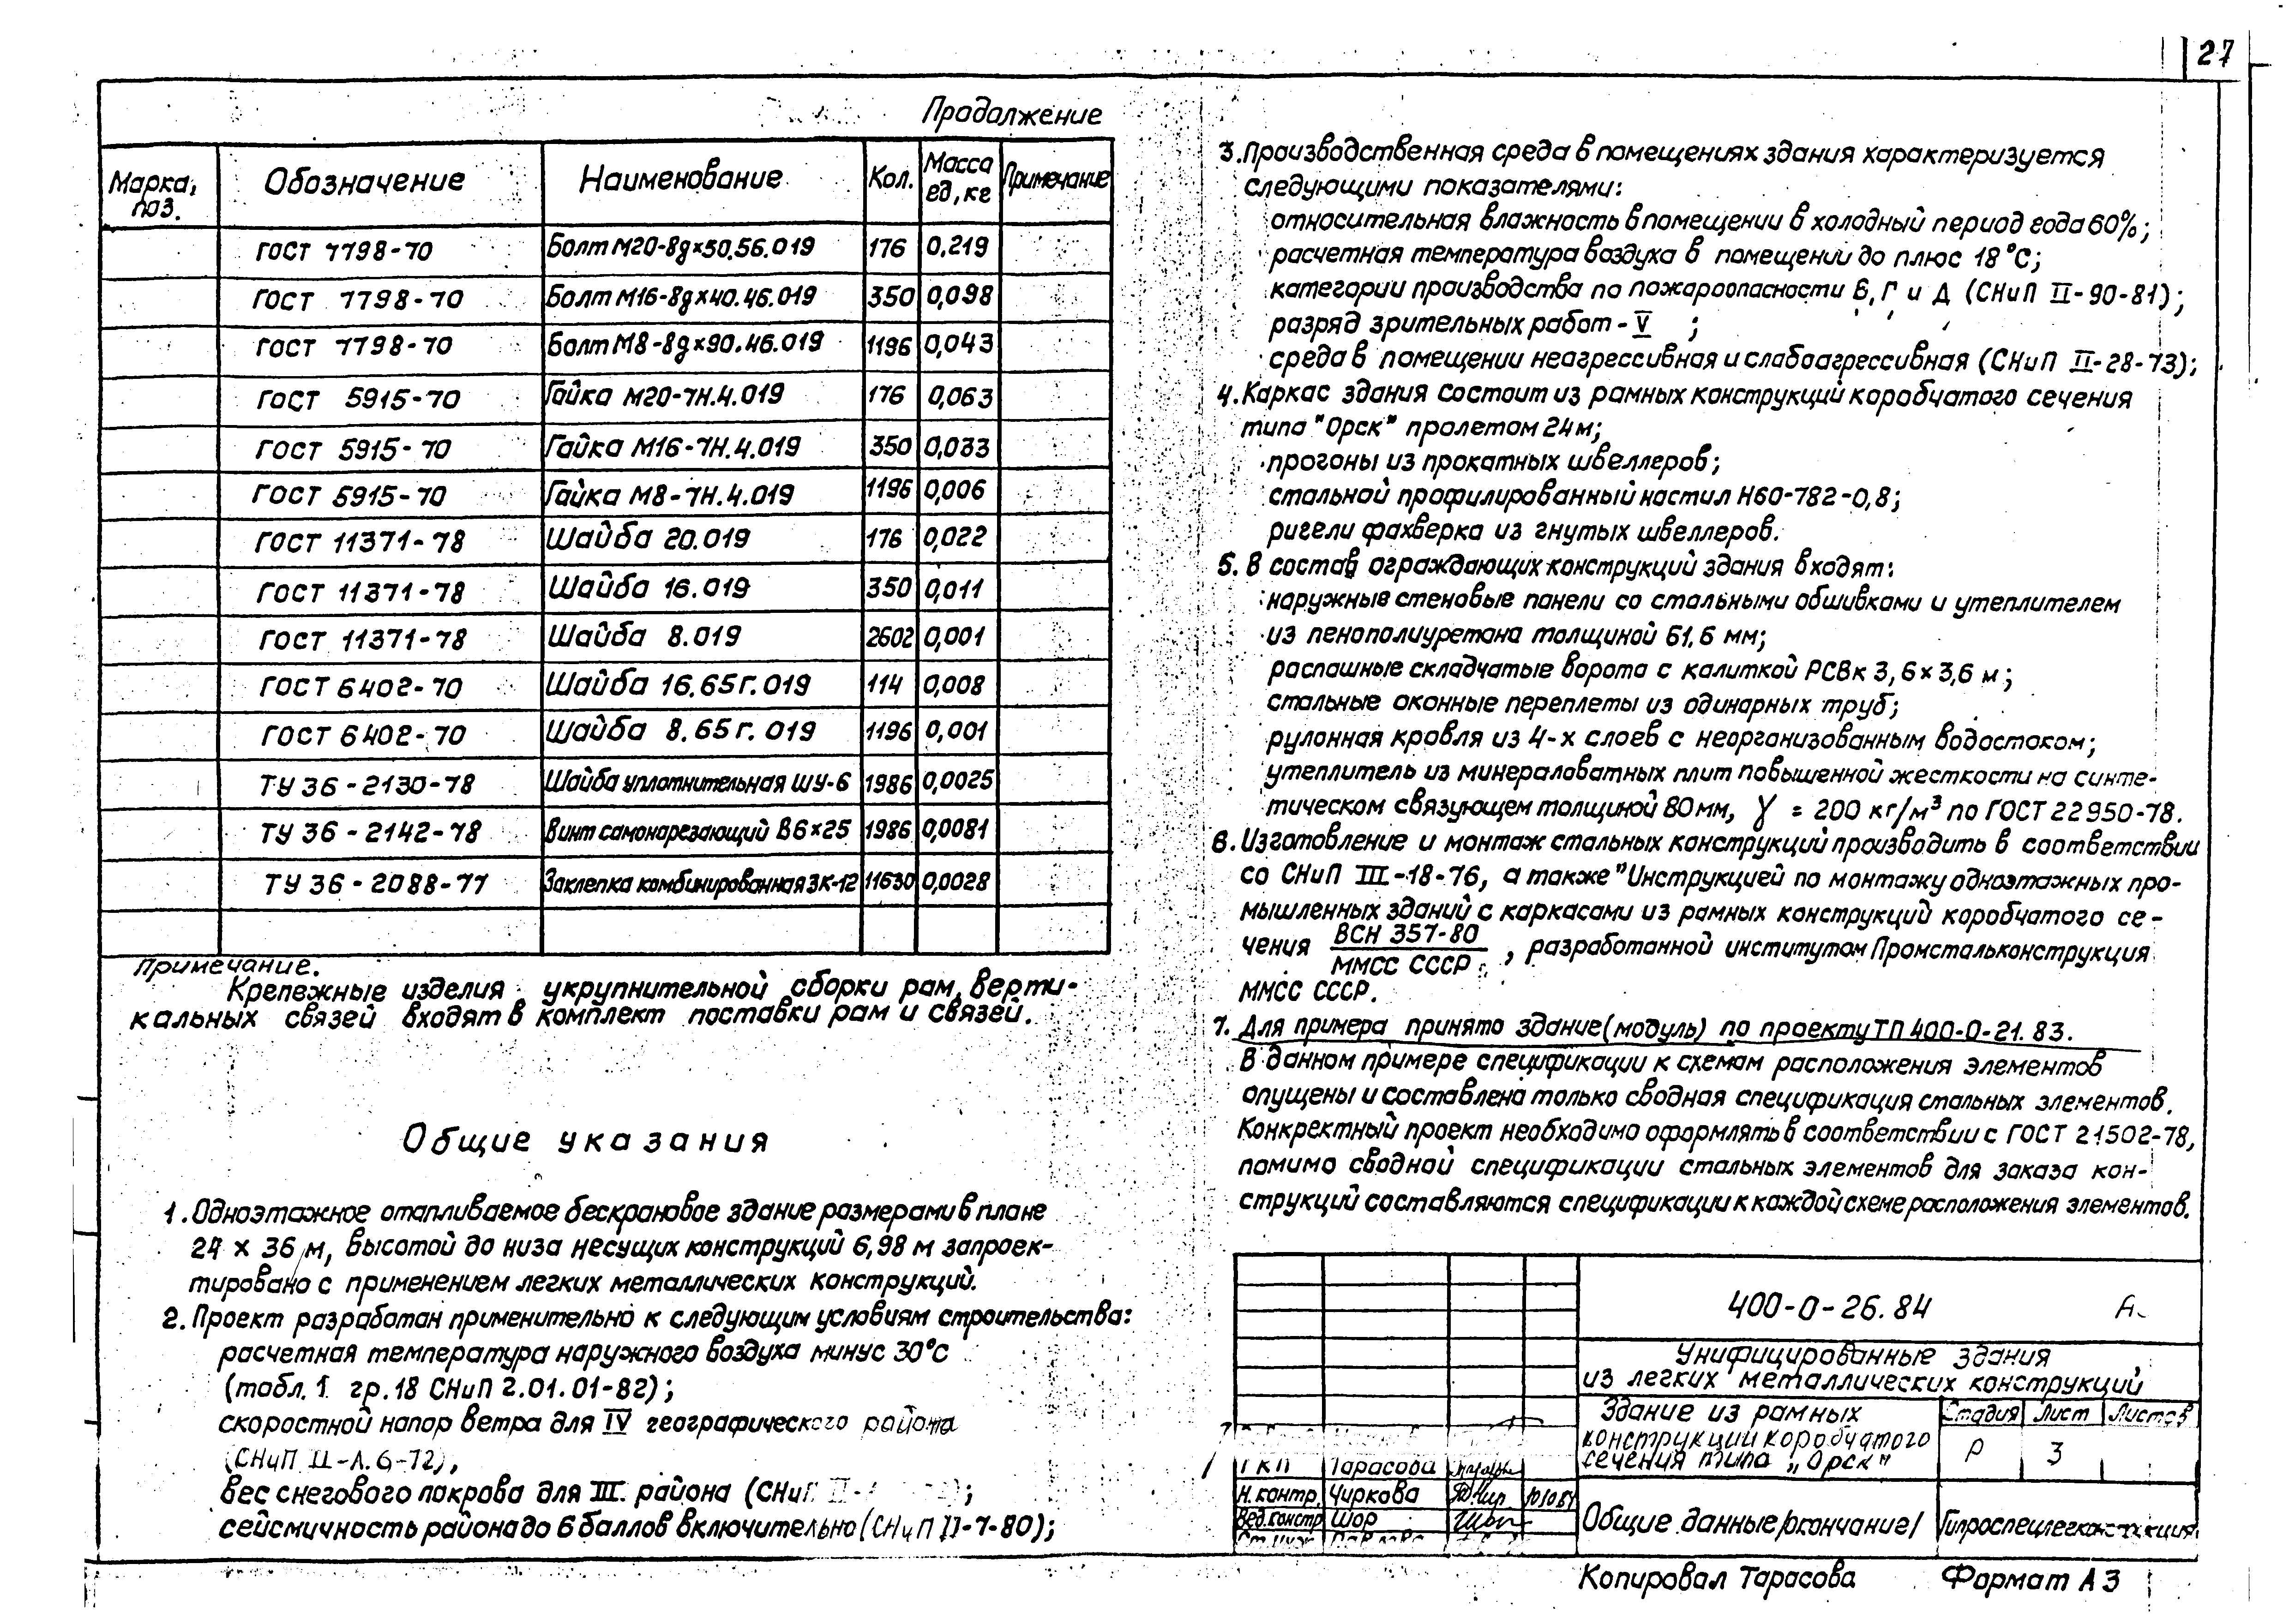 27
Продолжение
Марка, поз. Обозначение Наименование Кол. Масса ед, кг Примечание
ГОСТ 7798-70 Болт М20-8g×50.56.019 176 0,219
ГОСТ 7798-70 Болт М16-8g×40.46.019 350 0,098
ГОСТ 7798-70 Болт М8-8g×90.46.019 1196 0,043
ГОСТ 5915-70 Гайка М20-7Н.4.019 176 0,063
ГОСТ 5915-70 Гайка М16-7Н.4.019 350 0,033
ГОСТ 5915-70 Гайка М8-7Н.4.019 1196 0,006
ГОСТ 11371-78 Шайба 20.019 176 0,022
ГОСТ 11371-78 Шайба 16.019 350 0,011
ГОСТ 11371-78 Шайба 8.019 2602 0,001
ГОСТ 6402-70 Шайба 16.65Г.019 114 0,008
ГОСТ 6402-70 Шайба 8.65Г.019 1196 0,001
ТУ 36-2130-78 Шайба уплотнительная ШУ-6 1986 0,0025
ТУ 36-2142-78 Винт самонарезающий В6×25 1986 0,0081
ТУ 36-2088-77 Заклепка комбинированная ЗК-12 11630 0,0028
Примечание.
Крепежные изделия укрупнительной сборки рам, верти-
кальных связей входят в комплект поставки рам и связей.
Общие указания
1. Одноэтажное отапливаемое бескрановое здание размерами в плане
24 × 36 м, высотой до низа несущих конструкций 6,98 м запроек-
тировано с применением легких металлических конструкций.
2. Проект разработан применительно к следующим условиям строительства:
расчетная температура наружного воздуха минус 30°С
(табл. 1 гр.18 СНиП 2.01.01-82);
скоростной напор ветра для IV географического района
(СНиП II-А.6-72),
вес снегового покрова для III района (СНиП II-
сейсмичность района до 6 баллов включительно (СНиП II-7-80);
3. Производственная среда в помещениях здания характеризуется
следующими показателями:
относительная влажность в помещении в холодный период года 60%;
расчетная температура воздуха в помещении до плюс 18°С;
категории производства по пожароопасности В, Г и Д (СНиП II-90-81);
разряд зрительных работ - V ;
среда в помещении неагрессивная и слабоагрессивная (СНиП II-28-73);
4. Каркас здания состоит из рамных конструкций коробчатого сечения
типа "Орск" пролетом 24м;
прогоны из прокатных швеллеров;
стальной профилированный настил Н60-782-0,8;
ригели фахверка из гнутых швеллеров.
5. В состав ограждающих конструкций здания входят:
наружные стеновые панели со стальными обшивками и утеплителем
из пенополиуретана толщиной 61,6 мм;
распашные складчатые ворота с калиткой РСВк 3,6 × 3,6 м;
стальные оконные переплеты из одинарных труб;
рулонная кровля из 4-х слоев с неорганизованным водостоком;
утеплитель из минераловатных плит повышенной жесткости на синте-
тическом связующем толщиной 80мм, γ = 200 кг/м³ по ГОСТ 22950-78.
6. Изготовление и монтаж стальных конструкций производить в соответствии
со СНиП III-18-76, а также "Инструкцией по монтажу одноэтажных про-
мышленных зданий с каркасами из рамных конструкций коробчатого се-
чения ВСН 357-80 / ММСС СССР, разработанной институтом Промстальконструкция
ММСС СССР.
7. Для примера принято здание (модуль) по проекту ТП 400-0-21.83.
В данном примере спецификации к схемам расположения элементов
опущены и составлена только сводная спецификация стальных элементов.
Конкректный проект необходимо оформлять в соответствии с ГОСТ 21502-78,
помимо сводной спецификации стальных элементов для заказа кон-
струкций составляются спецификации к каждой схеме расположения элементов.
400-0-26.84 А
Унифицированные здания
из легких металлических конструкций
Здание из рамных
конструкций коробчатого
сечения типа „Орск"
Стадия Лист Листов
Р 3
ГКП Тарасова
Н.контр. Чиркова
Вед.констр Шор
Общие данные /окончание/
Гипроспецлегконструкция
Копировал Тарасова Формат А3